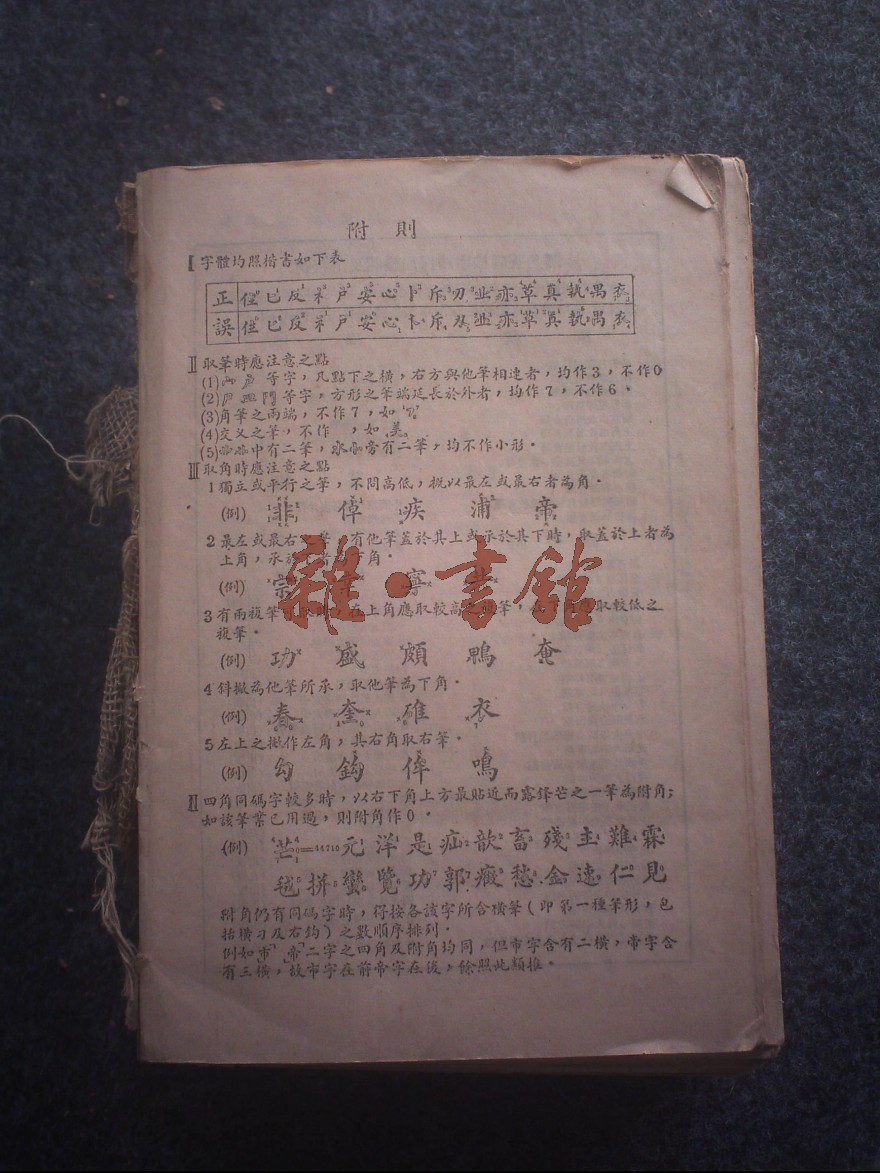 附則
Ⅰ 字體均照楷書如下表
正 住 巳 反 礻 戶 安 心 卜 斥 刃 业 亦 草 真 執 禺 衣
誤 住 巳 反 礻 戶 安 心 卜 斥 刃 业 亦 草 真 執 禺 衣
Ⅱ 取筆時應注意之點
(1) 等字,凡點下之橫,右方與他筆相連者,均作3,不作0
(2) 等字,方形之筆端延長於外者,均作7,不作6。
(3)角筆之兩端,不作7,如
(4)交叉之筆,不作 ,如 美。
(5) 中有二筆, 旁有二筆,均不作小形。
Ⅲ 取角時應注意之點
1 獨立或平行之筆,不問高低,概以最左或最右者為角。
(例) 非 倬 疾 浦 帝
2 最左或最右 有他筆蓋於其上或承於其下時,取蓋於上者為
上角,承於 角。
(例) 宗 寧
3 有兩複筆 在上角應取較高 筆, 下 取較低之
複筆。
(例) 功 盛 頗 鴨 奄
4 斜撇為他筆所承,取他筆為下角。
(例) 春 奎 碓 衣
5 左上之撇作左角,其右角取右筆。
(例) 勾 鈎 侔 鳴
Ⅳ 四角同碼字較多時,以右下角上方最貼近而露鋒芒之一筆為附角;
如該筆業已用過,則附角作0。
(例) 芒=44710 元 洋 是 疝 歆 畜 殘 主 難 霖
毯 拼 蠻 覽 功 郭 癥 愁 金 速 仁 見
附角仍有同碼字時,得按各該字所含橫筆(即第一種筆形,包
括橫刁及右鈎)之數順序排列。
例如市 帝二字之四角及附角均同,但市字含有二橫,帝字含
有三橫,故市字在前帝字在後,餘照此類推。
雜·書館